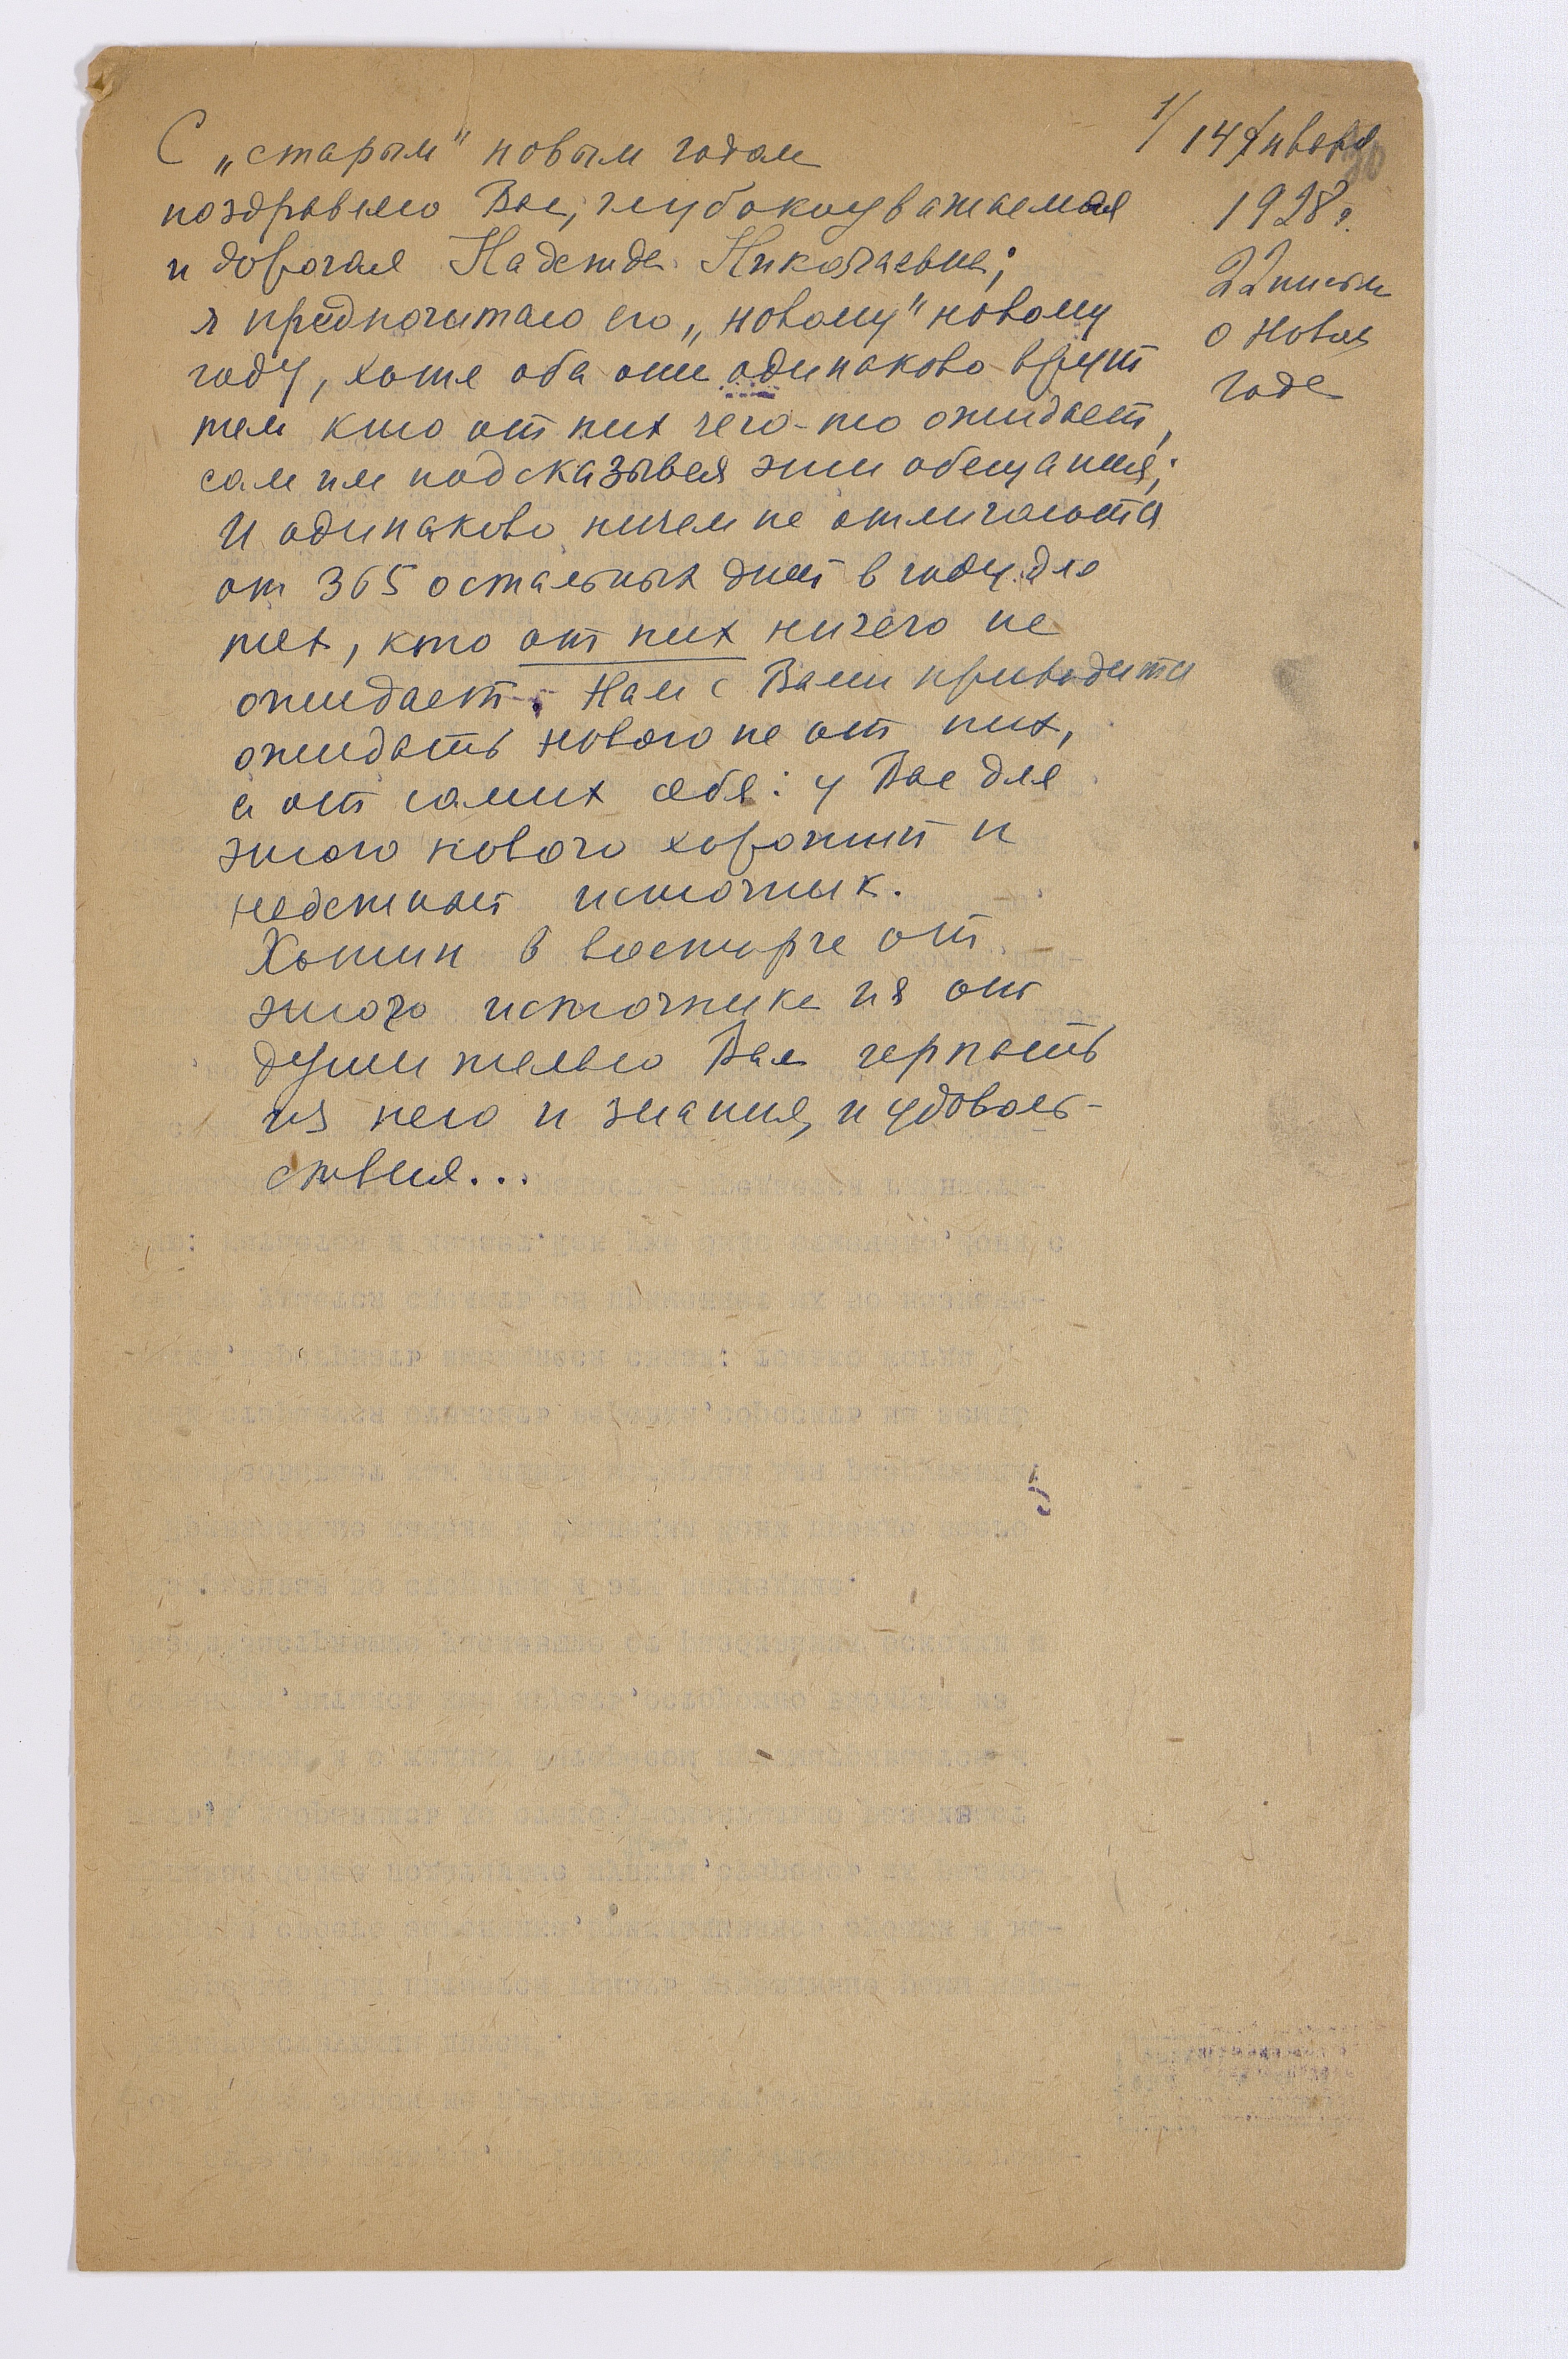 С „старым" новым годом
поздравляю Вас, глубокоуважаемая
и дорогая Надежда Николаевна;
я предпочитаю его „новому" новому
году, хотя оба они одинаково врут
тем кто от них чего-то ожидает,
сам им подсказывая эти обещания;
и одинаково ничем не отличаются
от 365 остальных дней в году для
тех, кто от них ничего не
ожидает. Нам с Вами приходится
ожидать нового не от них,
а от самих себя: у Вас для
этого нового хороший и
надежный источник.
в восторге от
этого источника и я от
души желаю Вам черпать
из него и знания, и удоволь-
ствия...
1/14 января
1928 г.
22
о Новом
годе